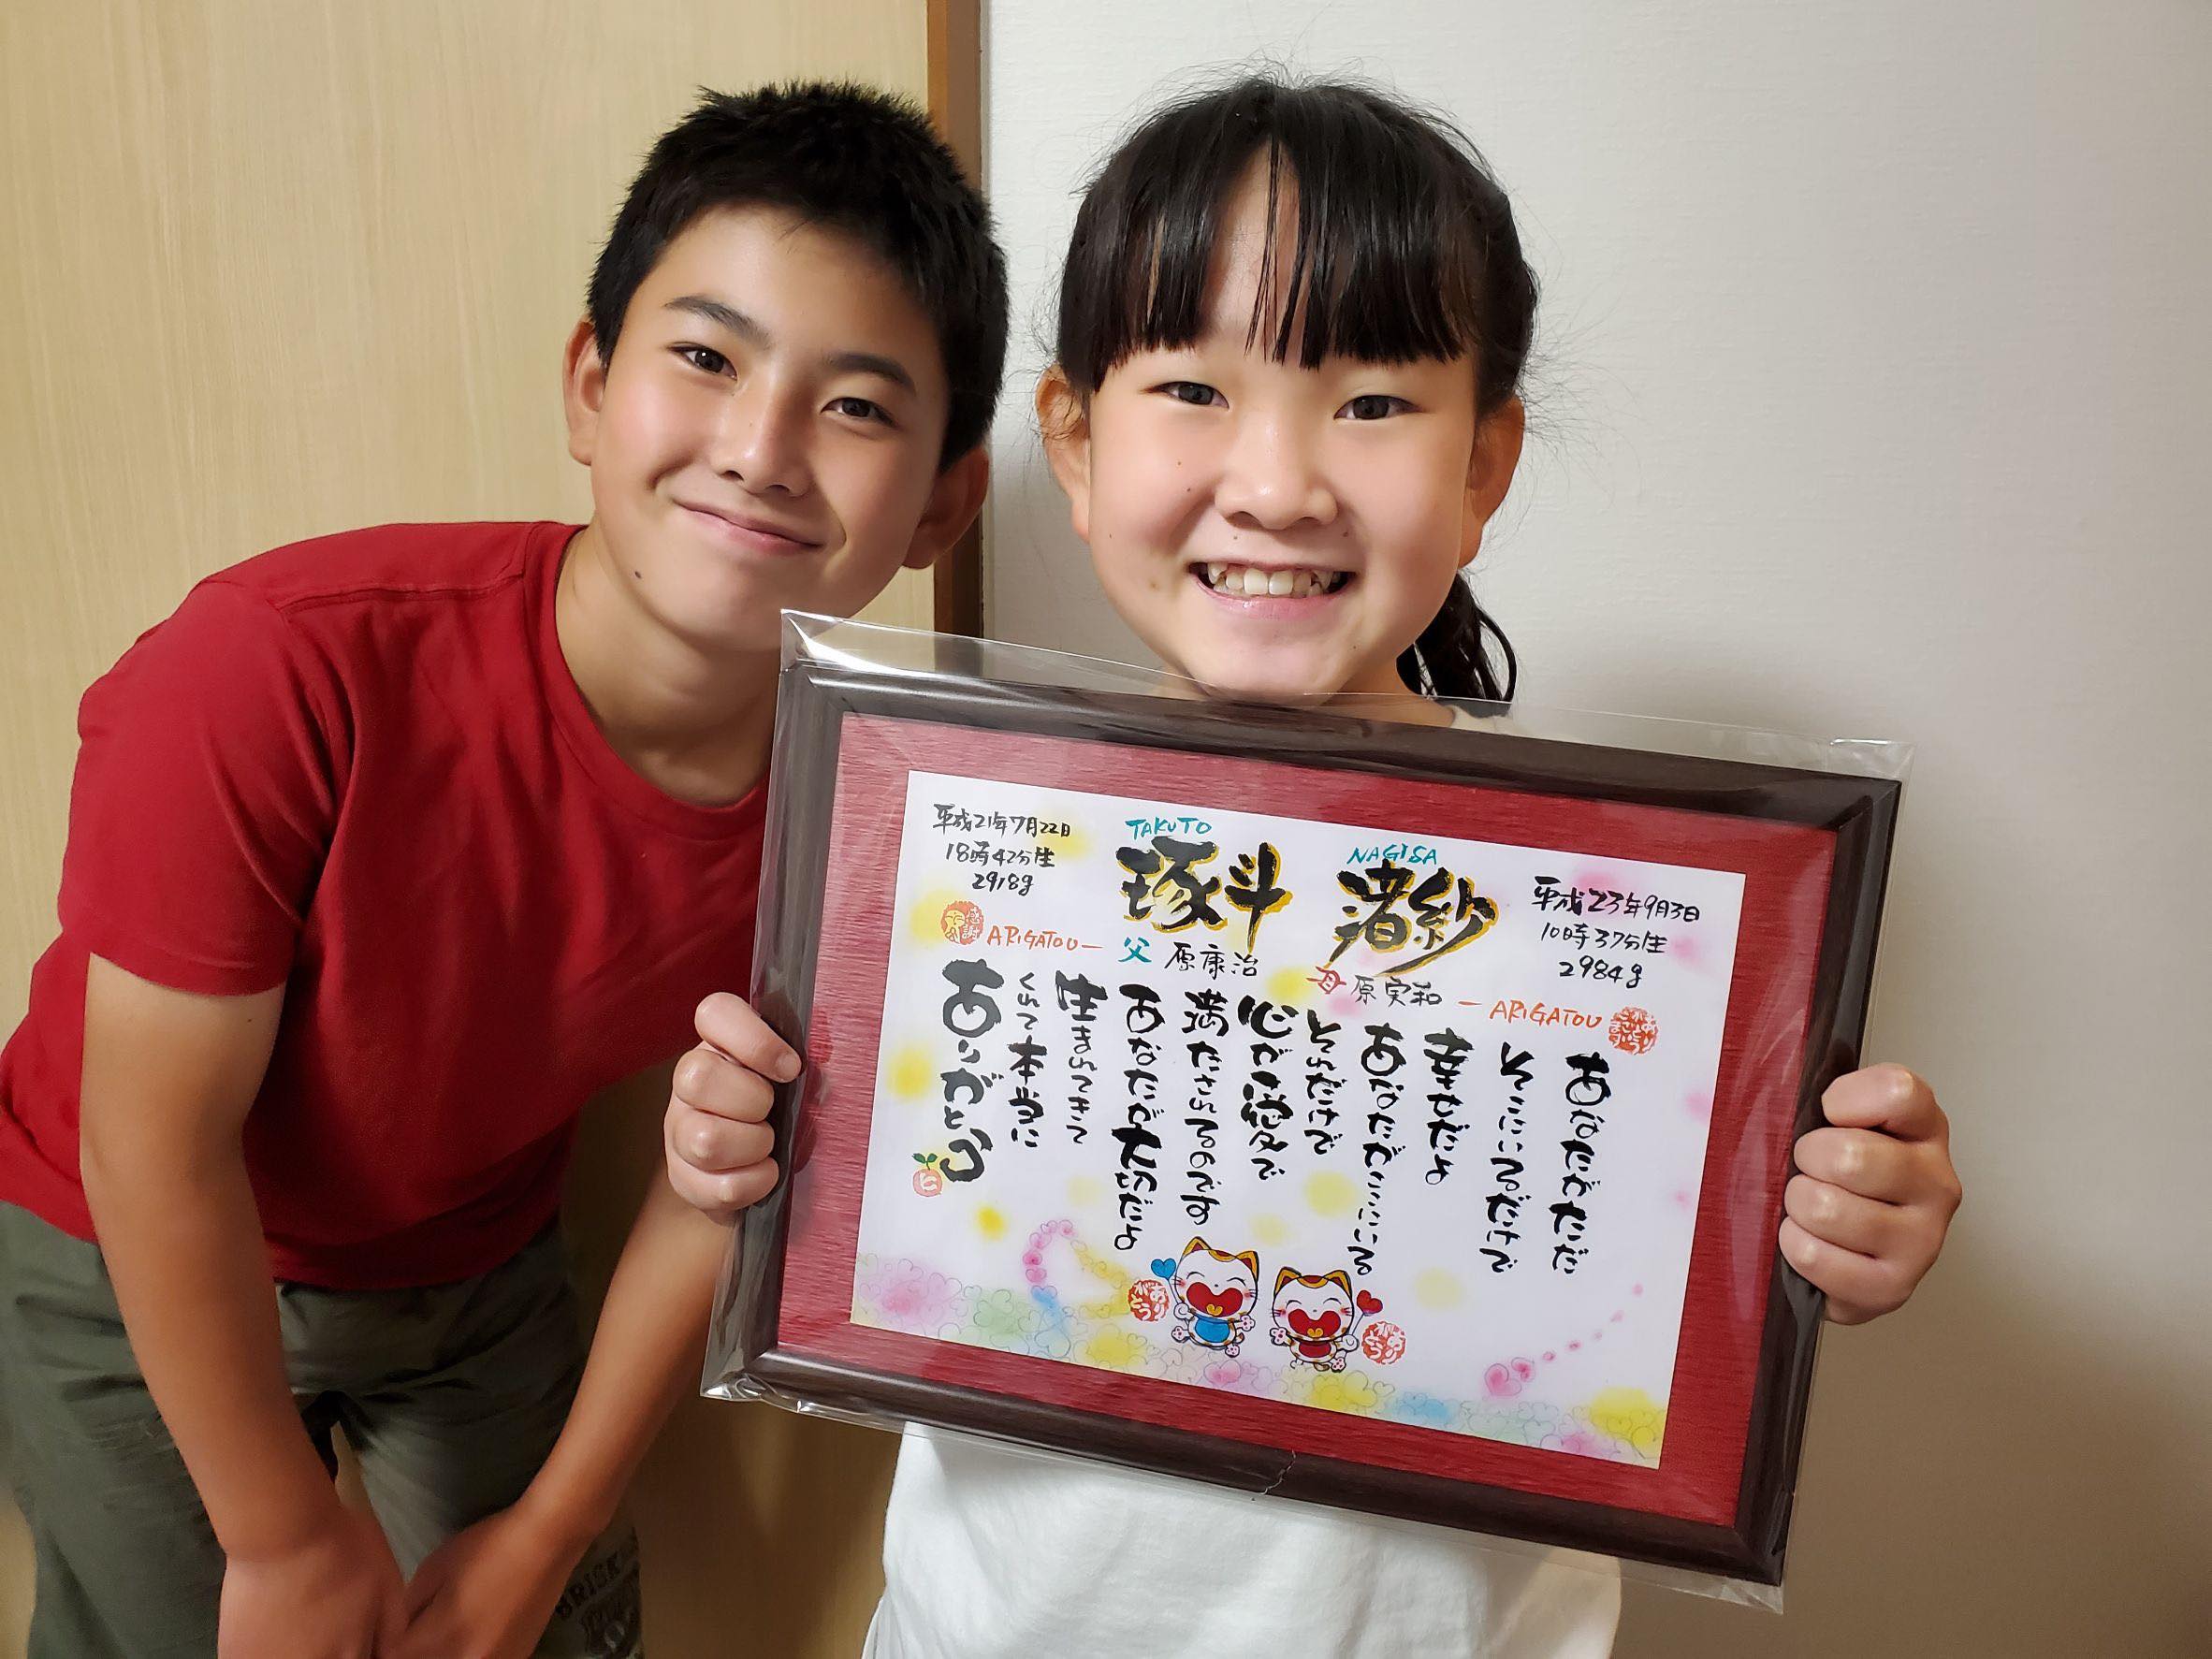 平成21年7月22日
18時42分生
2918g
TAKUTO
琢斗
NAGISA
渚紗
平成23年9月3日
10時37分生
2984g
感謝
ARIGATOU
父 原康治
母 原実和
ARIGATOU
あなたがただ
そこにいるだけで
幸せだよ
あなたがここにいる
それだけで
心が愛で
満たされるのです
あなたが大好だよ
生まれてきて
くれて本当に
ありがとう
ありがとう
ありがとう
BRICK